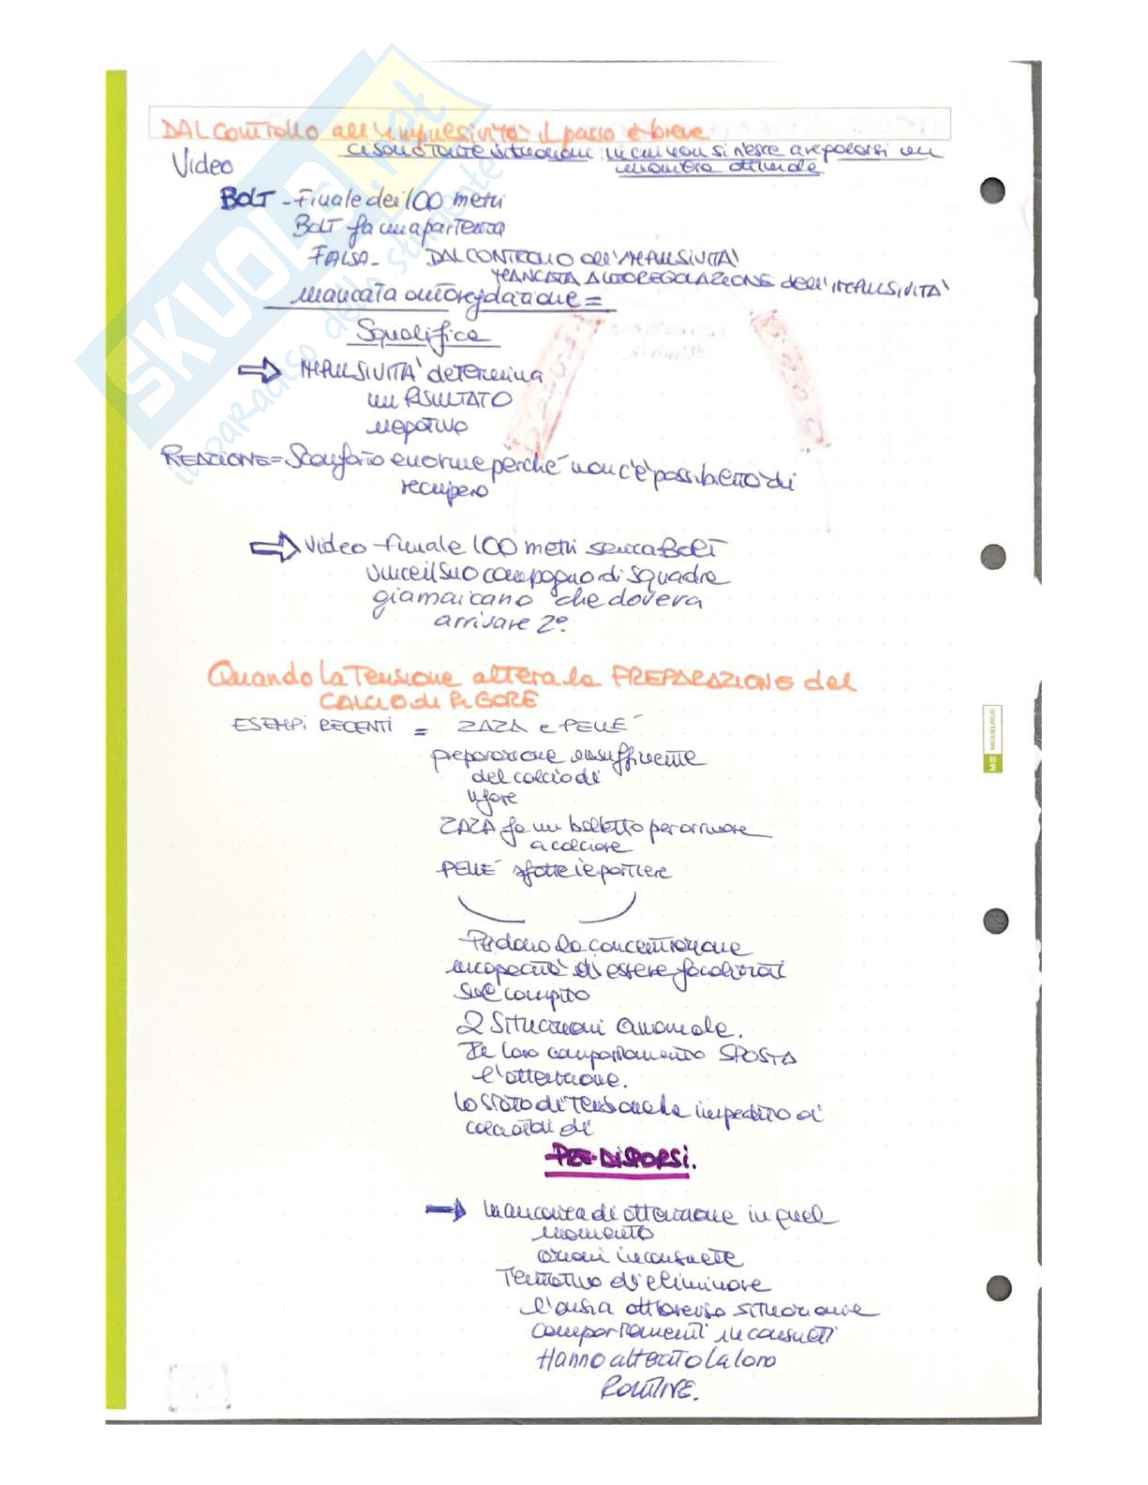 DAL controllo all'impulsività il passo è breve
ci sono tante situazioni in cui non si riesce a regolarsi in
maniera ottimale
Video
BOLT - Finale dei 100 metri
BOLT fa una partenza
FALSA - DAL CONTROLLO all'IMPULSIVITÀ
MANCATA AUTOREGOLAZIONE dell'IMPULSIVITÀ
mancata autoregolazione =
Squalifica
⇒ IMPULSIVITÀ determina
un RISULTATO
negativo
REAZIONE = Sconforto enorme perché non c'è possibilità di
recupero
⇒ Video - finale 100 metri senza Bolt
vince il suo compagno di squadra
giamaicano che doveva
arrivare 2º.
Quando la Tensione altera la PREPARAZIONE del
CALCIO di RIGORE
ESEMPI RECENTI = ZAZA e PELLÉ
preparazione insufficiente
del calcio di
rigore
ZAZA fa un balletto per arrivare
a calciare
PELLÉ sfotte il portiere
Perdono la concentrazione
incapacità di essere focalizzati
sul compito
2 Situazioni anomale.
Il loro comportamento SPOSTA
l'attenzione.
Lo stato di tensione ha impedito ai
calciatori di
PRE-DISPORSI.
→ mancanza di attenzione in quel
momento
azioni inconsuete
Tentativo di eliminare
l'ansia attraverso situazioni e
comportamenti inconsueti
Hanno alterato la loro
ROUTINE.
SKUOLA.net
il paradiso dello studente